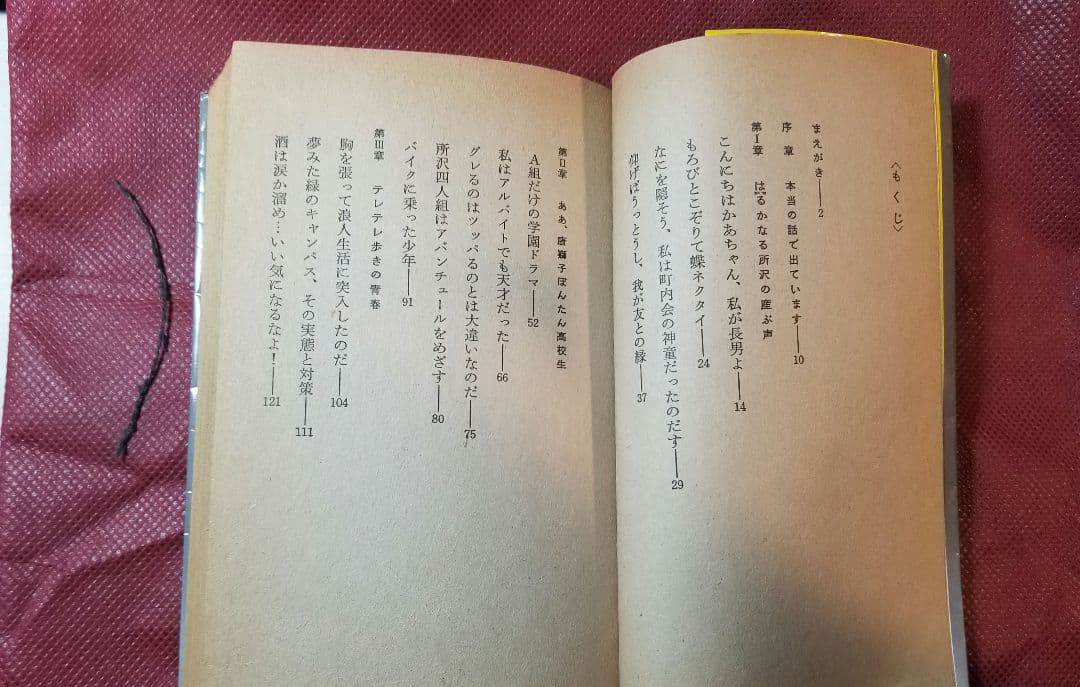 〈もくじ〉
まえがき――2
序章 本当の話で出ています――10
第Ⅰ章 はるかなる所沢の産ぶ声
こんにちはかあちゃん、私が長男よ――14
もろびとこぞりて蝶ネクタイ――24
なにを隠そう、私は町内会の神童だったのだす――29
仰げばうっとうし、我が友との縁――37
第Ⅱ章 ああ、唐獅子ぼんたん高校生
A組だけの学園ドラマ――52
私はアルバイトでも天才だった――66
グレるのはツッパるのとは大違いなのだ――75
所沢四人組はアバンチュールをめざす――80
バイクに乗った少年――91
第Ⅲ章 テレテレ歩きの青春
胸を張って浪人生活に突入したのだ――104
夢みた緑のキャンパス、その実態と対策――111
酒は涙か溜め…いい気になるなよ！――121